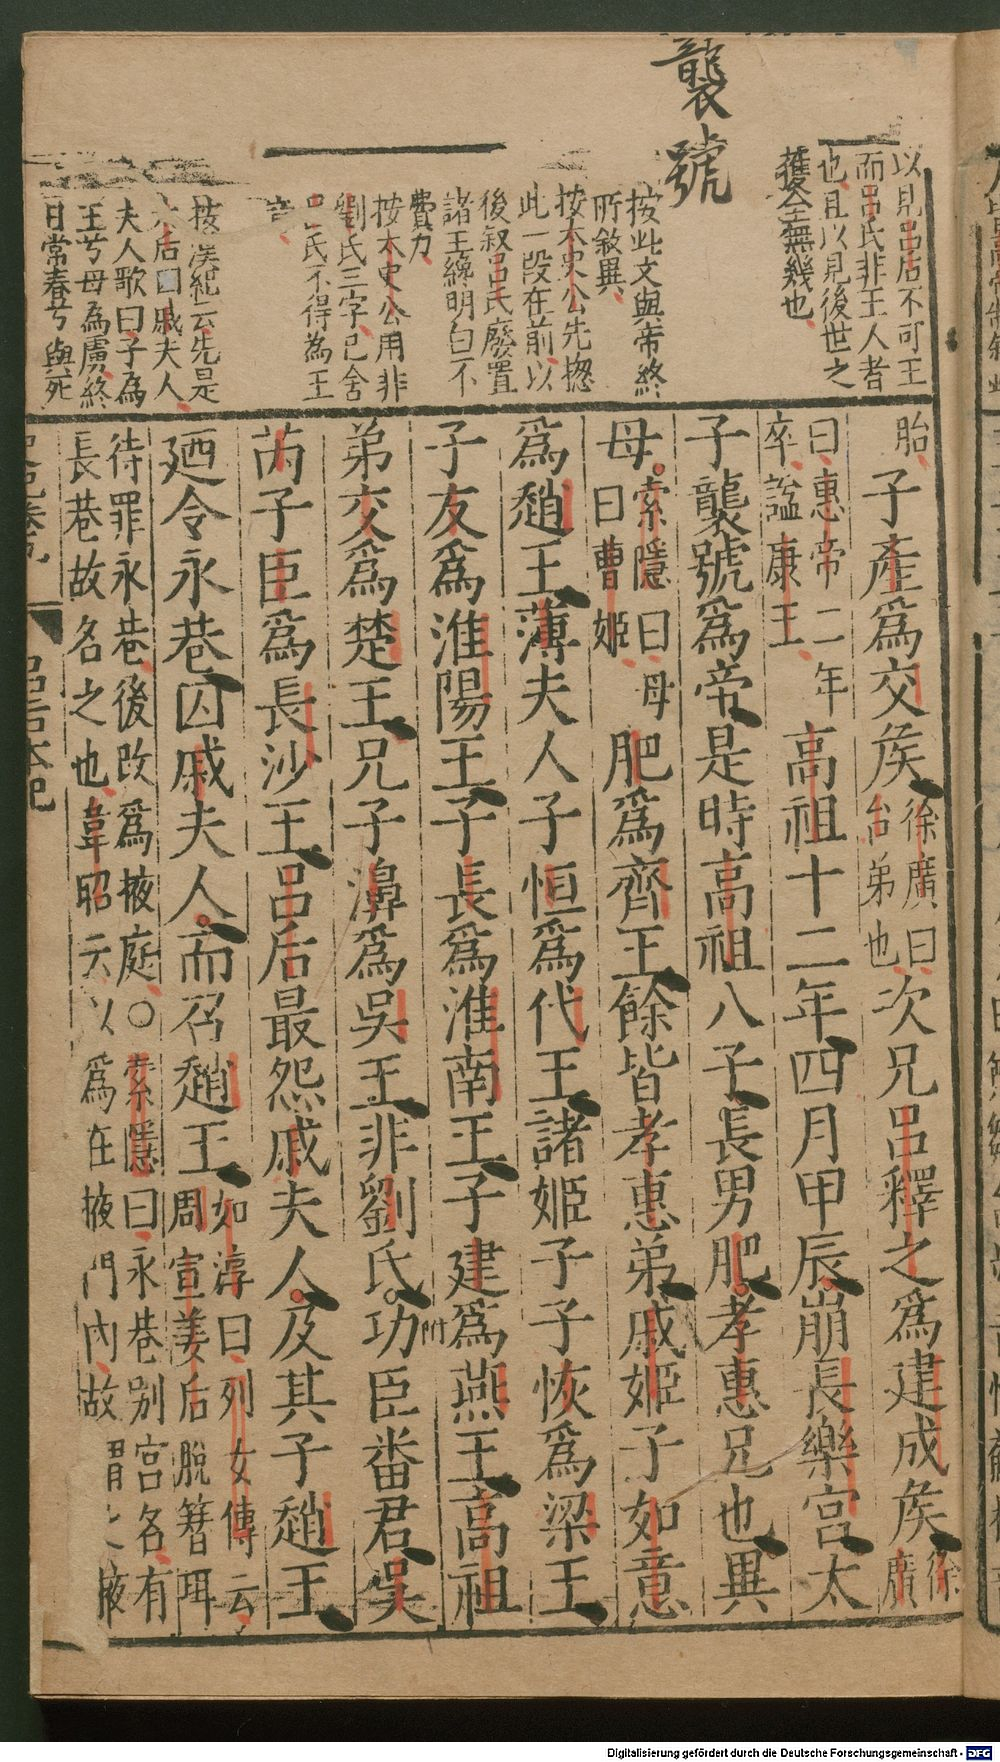 襲號
以見呂后不可王
而呂氏非王人者
也且以見後世之
獲全無幾也
按此文與帝終
所敘異
按太史公先揔
此一段在前以
後叙呂氏廢置
諸王纔明白不
費力
按太史公用非
劉氏三字已舍
呂氏不得為王
意
按漢紀云先是
太后囚戚夫人
夫人歌曰子為
王兮母為虜終
日常春兮與死
胎子產爲交矦徐廣曰台弟也次兄呂釋之爲建成矦徐廣
曰惠帝二年卒謚康王高祖十二年四月甲辰崩長樂宮太
子襲號爲帝是時高祖八子長男肥孝惠兄也異
母索隱曰母曰曹姬肥爲齊王餘皆孝惠弟戚姬子如意
爲趙王薄夫人子恒爲代王諸姬子子恢爲梁王
子友爲淮陽王子長爲淮南王子建爲燕王高祖
弟交爲楚王兄子濞爲吳王非劉氏功臣番君吳
芮子臣爲長沙王呂后最怨戚夫人及其子趙王
附
廼令永巷囚戚夫人而召趙王如淳曰列女傳云周宣姜后脫簪珥
待罪永巷後改爲掖庭○索隱曰永巷别宮名有
長巷故名之也韋昭云以爲在掖門內故謂之掖
呂后本紀
Digitalisierung gefördert durch die Deutsche Forschungsgemeinschaft - DFG